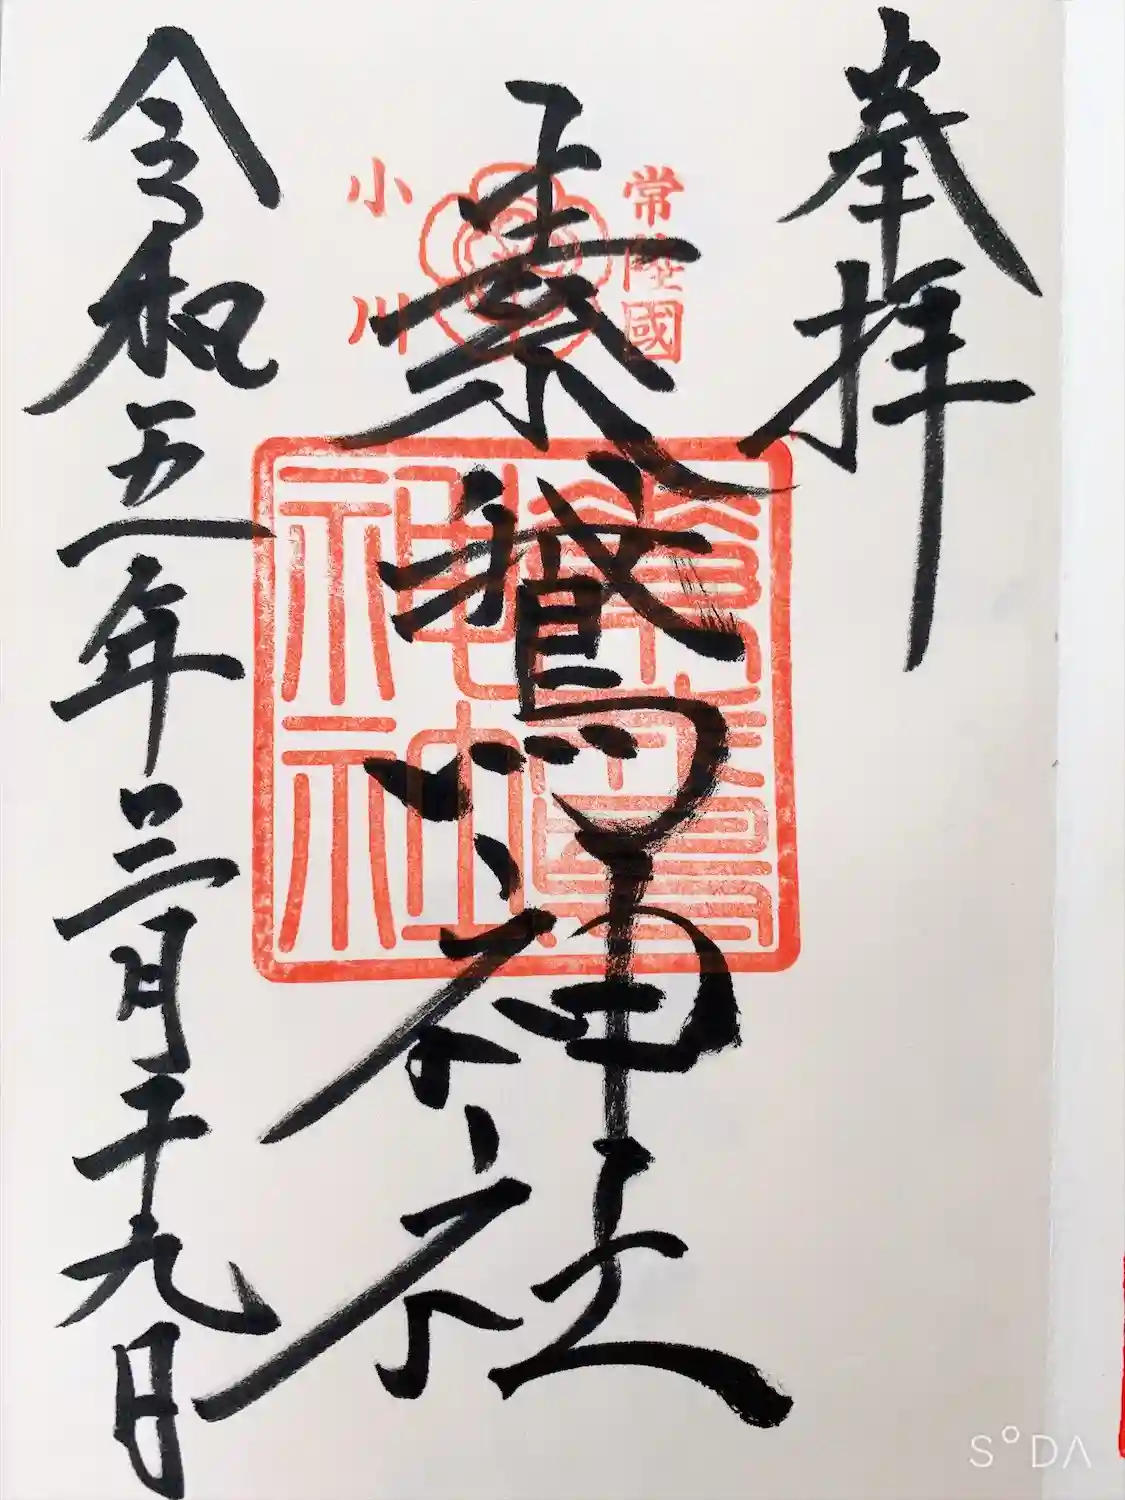 奉拝
常陸國
素鵞神社
小川
素鵞神社
令和五年三月十九日
SODA